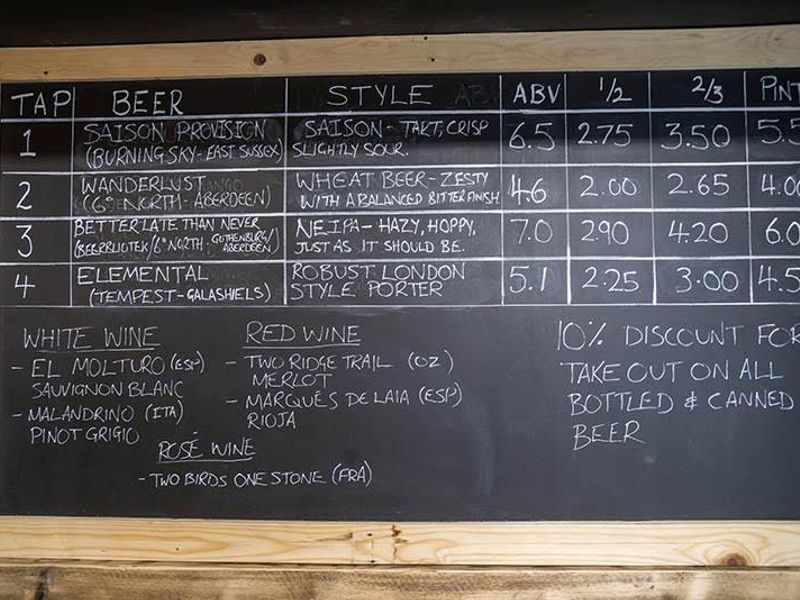 TAP BEER STYLE ABV 1/2 2/3 PINT
1 SAISON PROVISION SAISON - TART, CRISP 6.5 2.75 3.50 5.5
(BURNING SKY - EAST SUSSEX) SLIGHTLY SOUR.
2 WANDERLUST WHEAT BEER - ZESTY 4.6 2.00 2.65 4.0
(6° NORTH - ABERDEEN) WITH A BALANCED BITTER FINISH
3 BETTER LATE THAN NEVER NEIPA - HAZY, HOPPY, 7.0 2.90 4.20 6.0
(BEERBLIOTEK/6° NORTH - GOTHENBURG/ABERDEEN) JUST AS IT SHOULD BE.
4 ELEMENTAL ROBUST LONDON 5.1 2.25 3.00 4.5
(TEMPEST - GALASHIELS) STYLE PORTER
WHITE WINE
- EL MOLTURO (ESP)
SAUVIGNON BLANC
- MALANDRINO (ITA)
PINOT GRIGIO
RED WINE
- TWO RIDGE TRAIL (OZ)
MERLOT
- MARQUÉS DE LAIA (ESP)
RIOJA
ROSÉ WINE
- TWO BIRDS ONE STONE (FRA)
10% DISCOUNT FOR
TAKE OUT ON ALL
BOTTLED & CANNED
BEER